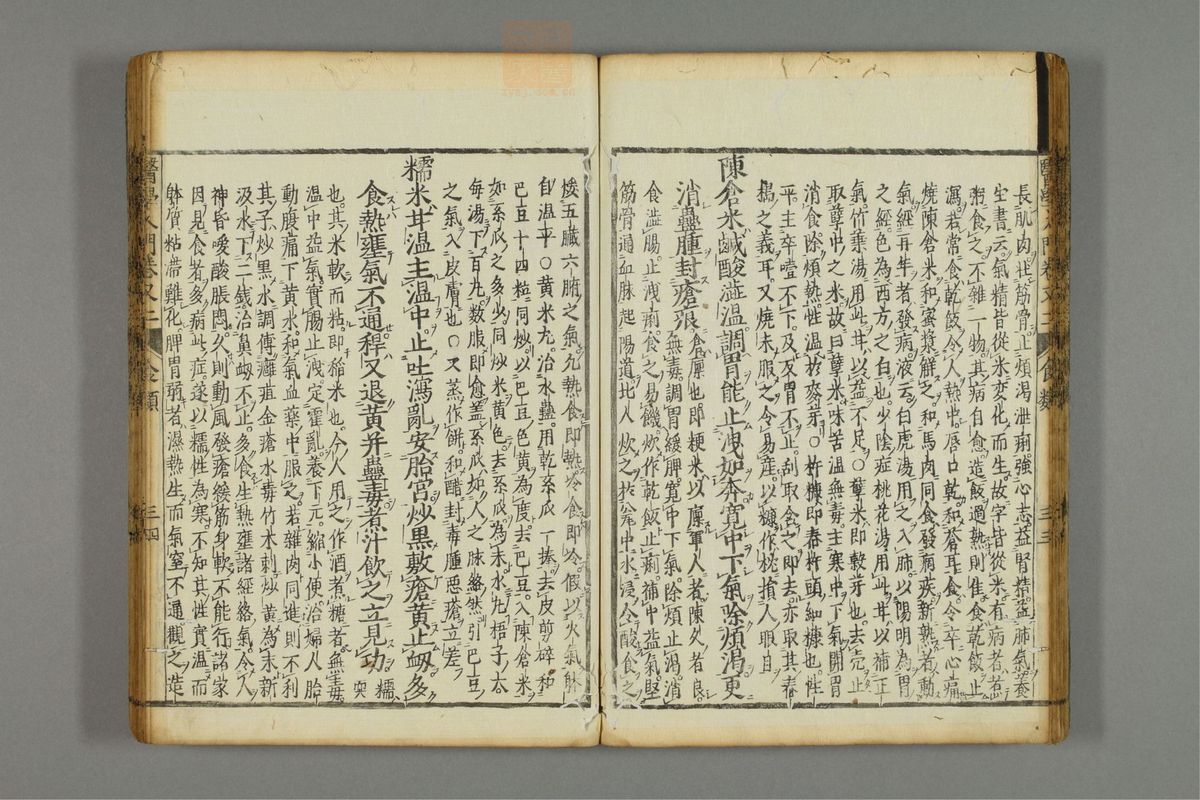 長肌肉壯筋骨止煩渴泄痢強心志益腎精益肺氣養
生書云氣精皆從米變化而生故字皆從米有病者煮
粥食之不雜一物其病自愈造飯過熱則佳食乾飯止
瀉若常食乾飯令人熱中唇口乾和蒼耳食令卒心痛
燒陳倉米和蜜漿解之和馬肉同食發痼疾新熟者動
氣經再年者發病液云白虎湯用之入肺以陽明為胃
之經色為西方之白也少陰症桃花湯用此甘以補正
氣竹葉湯用此甘以益不足○糵米即穀芽也去殼止
取糵中之米故曰糵米味苦溫無毒主寒中下氣開胃
消食除煩熱性溫於麥芽○杵糠即舂杵頭細糠也性
平主卒噎不下及反胃不止刮取含之即去亦取其舂
搗之義耳又燒末服之令易産以糠作枕損人眼目
陳倉米鹹酸澁溫調胃能止洩如奔寛中下氣除煩渴更
消蠱腫封瘡痕 倉廩也即粳米以廩軍人者陳久者良
無毒調胃緩脾寛中下氣除煩止渴消
食澁腸止洩痢食之易饑炊作乾飯止痢補中益氣堅
筋骨通血脉起陽道北人炊之於瓮中水浸令酸食之
煖五臟六腑之氣凡熱食即熱冷食即冷假以火氣躰
自溫平○黃米丸治水蠱用乾系瓜一捧去皮剪碎和
巴豆十四粒同炒以巴豆色黃為度去巴豆入陳倉米
如系瓜之多少同炒米黃色去系瓜為末水丸梧子大
每湯下百丸數服即愈蓋系瓜如人之脉絡然引巴豆
之氣入皮膚也○又蒸作餅和醋封毒腫惡瘡立差
糯米甘溫主溫中止吐瀉亂安胎宮炒黑敷瘡黃止衄多
食熱壅氣不通稈又退黃并蠱毒煮汁飲之立見功 糯
耎
也其米軟而粘即稻米也今人用之作酒煮糖者無毒
溫中益氣實腸止洩定霍亂養下元縮小便治婦人胎
動腹痛下黃水和氣血藥中服之若雜肉同進則不利
其子炒黑水調傅癰疽金瘡水毒竹木刺炒黃為末新
汲水下二錢治鼻衄不止多食生熱壅諸經絡氣令人
神昏嗳酸脹悶久則動風發瘡緩筋身軟不能行諸家
因見食者多病此症遂以糯性為寒不知其性實溫而
躰質粘滯難化脾胃弱者濕熱生而氣窒不通觀之造
醫學入門卷又二 食類 三三
醫學入門卷又二 食類 三四